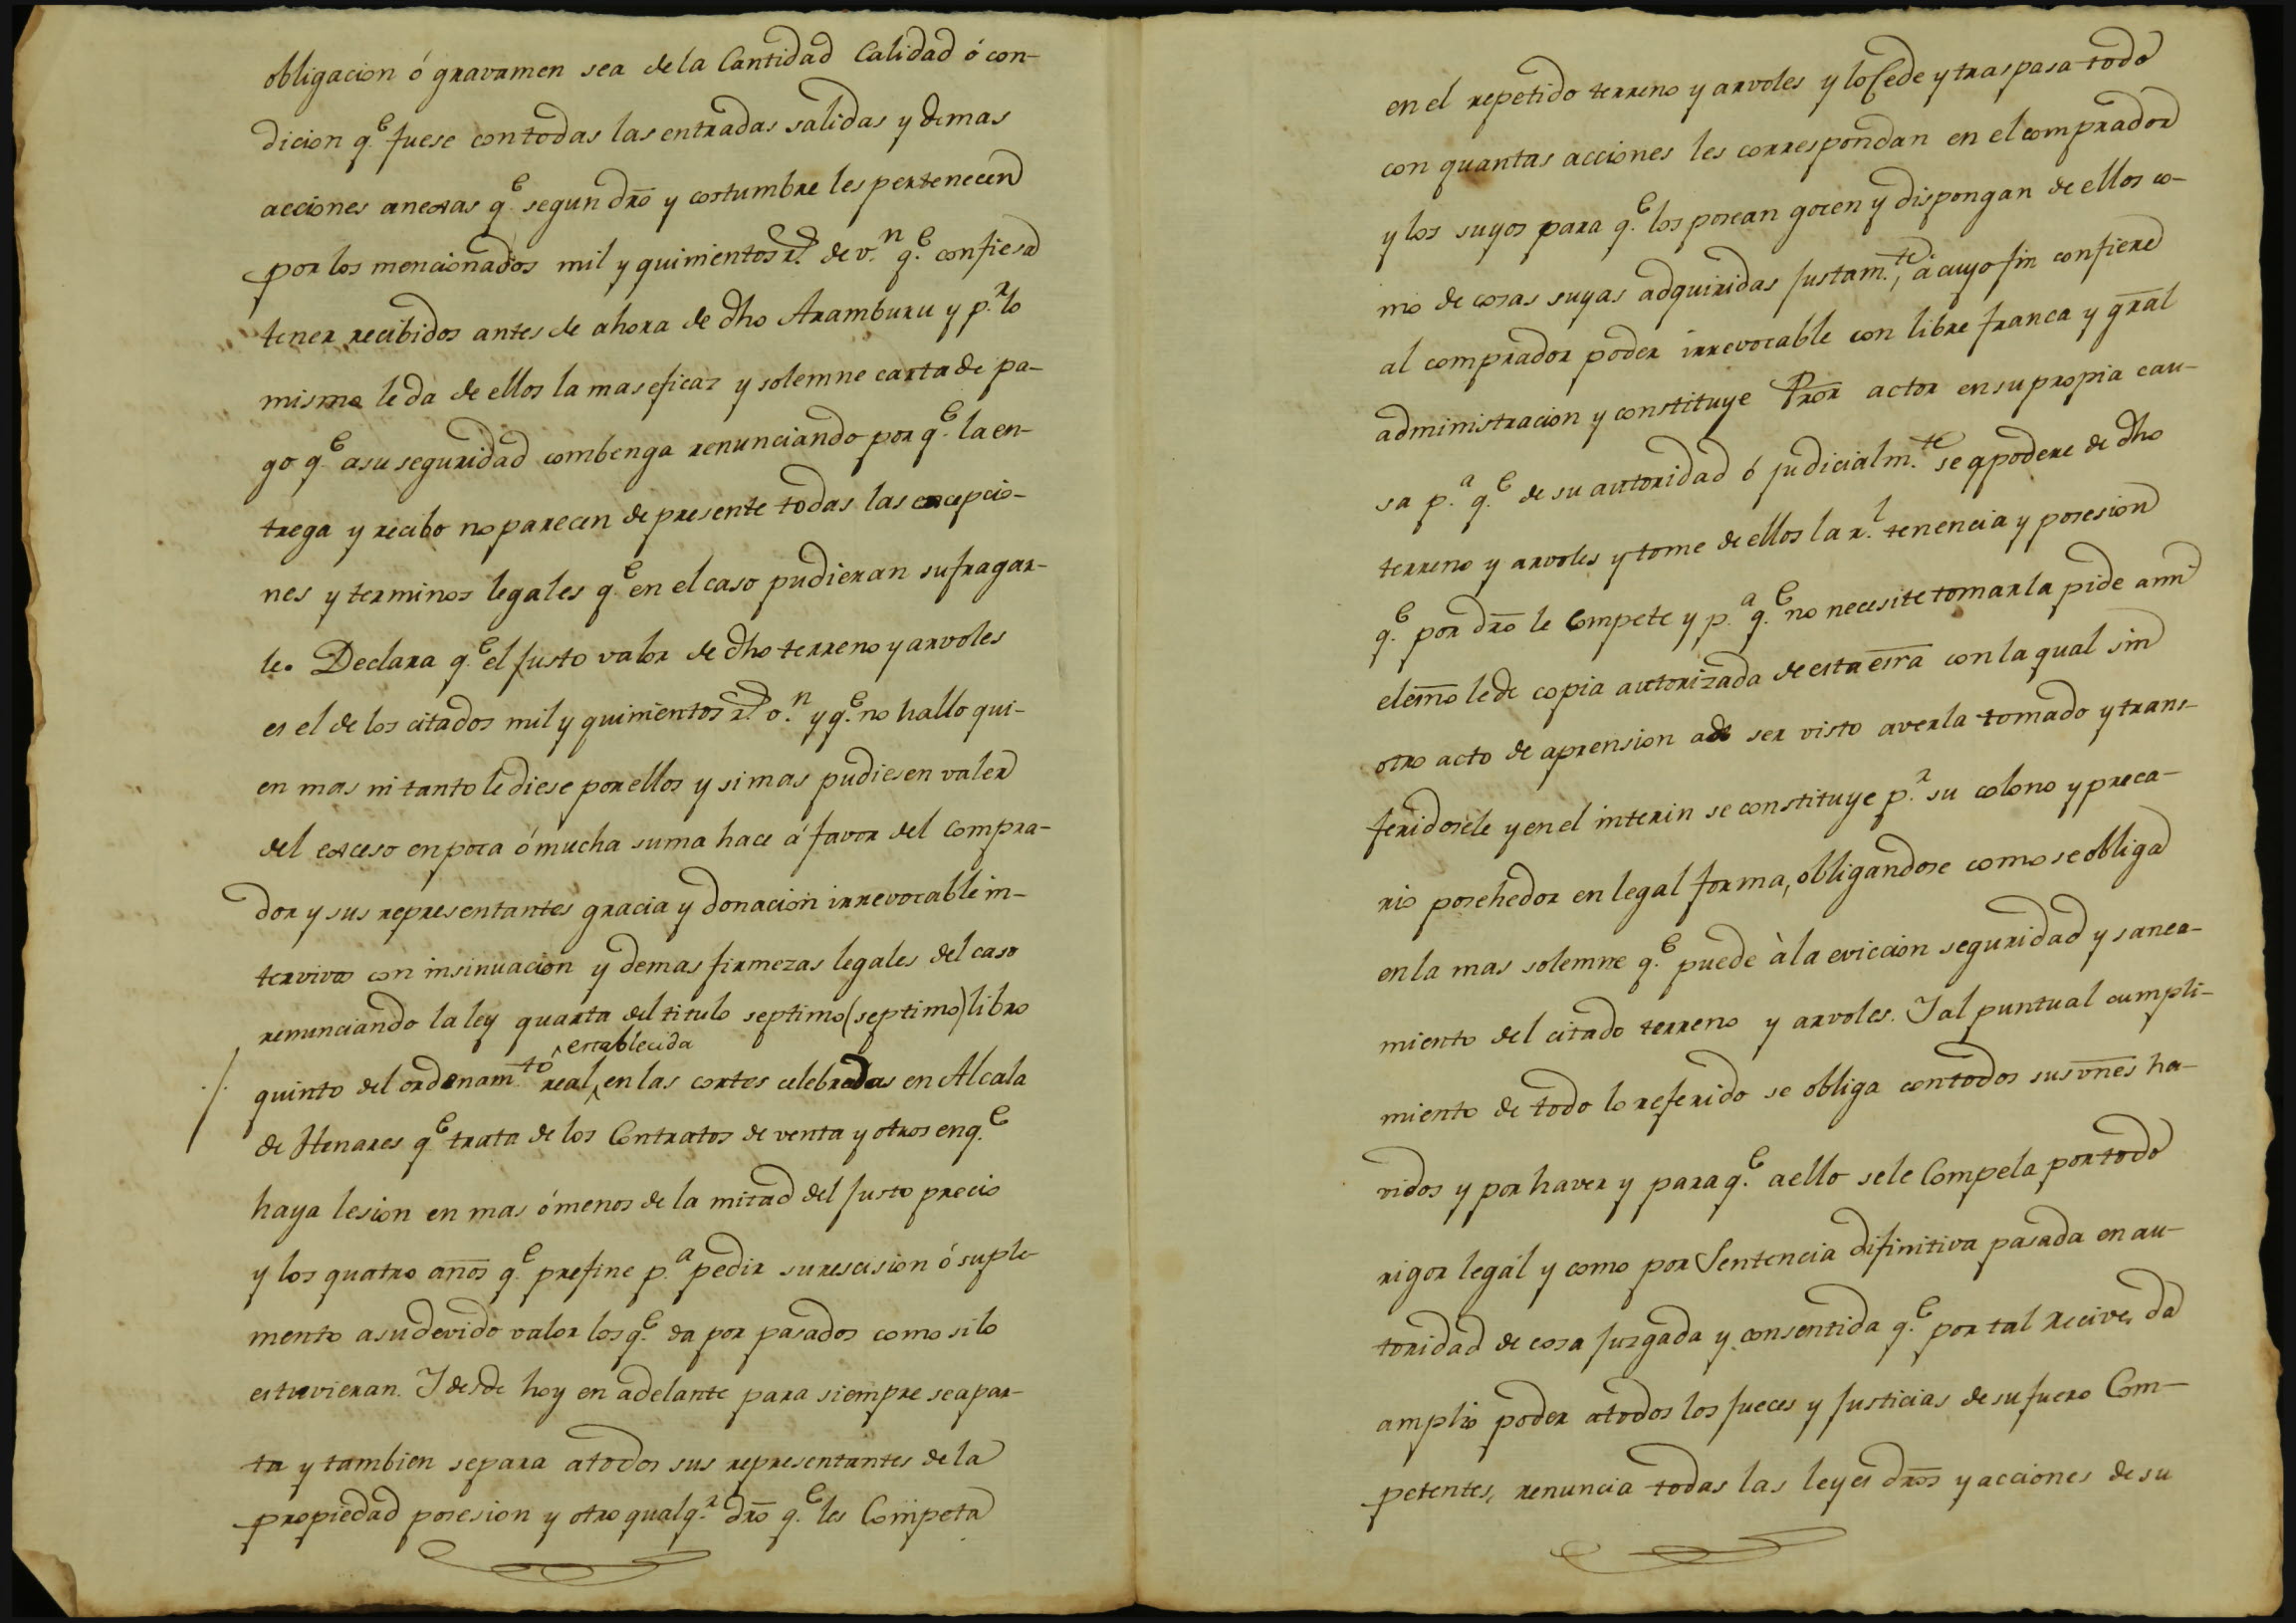 obligacion ó gravamen sea dela Cantidad Calidad ó con-
dicion q.e fuese contodas las entradas salidas y demas
acciones anexas q.e segun dro y costumbre les pertenecen
por los mencionados mil y quinientos r.s de v.n q.e confiesa
tener recibidos antes de ahora de dho Aramburu y p.r lo
mismo le da de ellos la mas eficaz y solemne carta de pa-
go q.e asu seguridad combenga renunciando por q.e la en-
trega y recibo no parecen de presente todas las excepcio-
nes y terminos legales q.e en el caso pudieran sufragar-
le. Declara q.e el justo valor de dho terreno y arvoles
es el de los citados mil y quinientos r.s v.n y q.e no hallo qui-
en mas ni tanto le diese por ellos y si mas pudiesen valer
del exceso en poca ó mucha suma hace á favor del Compra-
dor y sus representantes gracia y donacion irrevocable in-
tervivos con insinuacion y demas firmezas legales del caso
renunciando la ley quarta del titulo septimo (septimo) libro
establecida
quinto del ordenam.to real, en las cortes celebradas en Alcala
de Henares q.e trata de los Contratos de venta y otros en q.e
haya lesion en mas ó menos de la mitad del justo precio
y los quatro años q.e prefine p.a pedir su rescision ó suple-
mento asu devido valor los q.e da por pasados como si lo
estuvieran. Y desde hoy en adelante para siempre se apar-
ta y tambien separa atodos sus representantes de la
propiedad posesion y otro qualq.r dro q.e les Competa
en el repetido terreno y arvoles y lo Cede y traspasa todo
con quantas acciones les correspondan en el comprador
y los suyos para q.e los posean gocen y dispongan de ellos co-
mo de cosas suyas adquiridas justam.te, á cuyo fin confiere
al comprador poder irrevocable con libre franca y gral
administracion y constituye Pror actor en su propia cau-
sa p.a q.e de su autoridad ó judicialm.te se apodere de dho
terreno y arvoles y tome de ellos la r.l tenencia y posesion
q.e por dro le Compete y p.a q.e no necesite tomarla pide ami
el esno le de copia autorizada de esta esra con la qual sin
otro acto de aprension ade ser visto averla tomado y trans-
feridosele y en el interin se constituye p.r su colono y preca-
rio posehedor en legal forma, obligandose como se obliga
en la mas solemne q.e puede à la eviccion seguridad y sanea-
miento del citado terreno y arvoles. Y al puntual cumpli-
miento de todo lo referido se obliga contodos sus vnes ha-
vidos y por haver y para q.e aello sele Compela por todo
rigor legál y como por Sentencia difinitiva pasada en au-
toridad de cosa juzgada y consentida q.e por tal recive, da
amplio poder atodos los jueces y justicias de su fuero Com-
petentes, renuncia todas las leyes dros y acciones de su